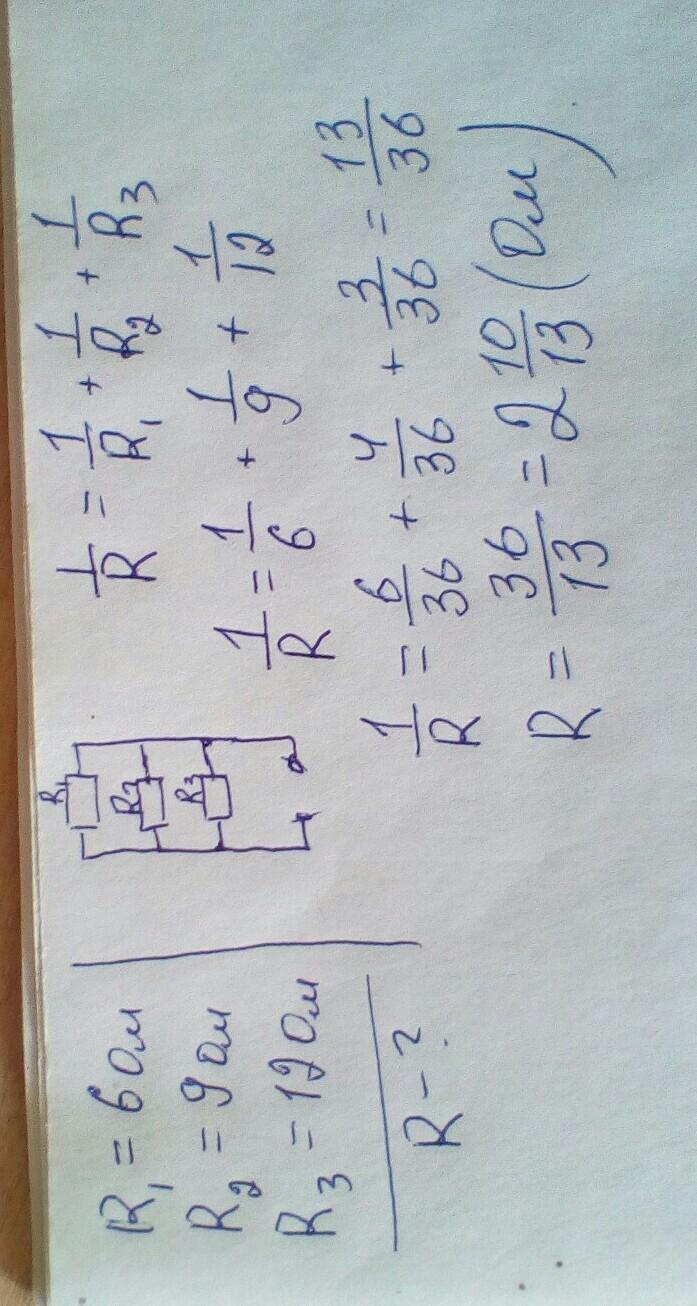 R₁ = 6 Ом
R₂ = 9 Ом
R₃ = 12 Ом
R - ?
R₁
R₂
R₃
1/R = 1/R₁ + 1/R₂ + 1/R₃
1/R = 1/6 + 1/9 + 1/12
1/R = 6/36 + 4/36 + 3/36 = 13/36
R = 36/13 = 2 10/13 (Ом)